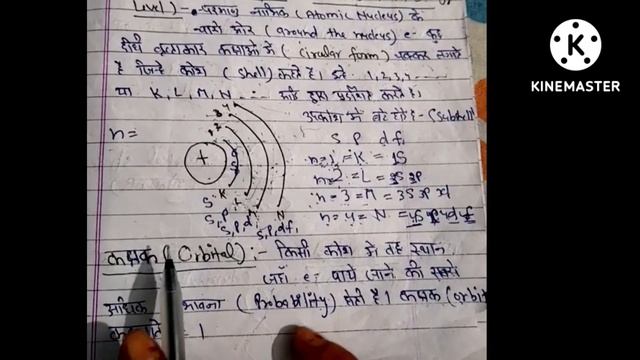 Level) :- परमाणु नाभिक (Atomic Nucleus) के
चारो ओर (around the nucleus) e- कुछ
वृत्ताकार कक्षाओं में (Circular form) चक्कर लगाते
है जिन्हें कोश (Shell) कहते हैं। इसे 1,2,3,4 ....
या K, L, M, N ... आदि द्वारा प्रदर्शित करते है।
उपकोश में बटे होते :- (Subshell)
n=
S P d f
n=1 = K = 1S
n=2 = L = 2S 2P
n=3 = M = 3S 3P 3d
n=4 = N = 4S 4P 4d 4f
+
K L M N
S
S, P
S, P, d
S, P, d, f
कक्षक (Orbital) :- किसी कोश में वह स्थान
जहाँ e- पाये जाने की सबसे
अधिक (Probability) होती है। कक्षक (orbit
K
KINEMASTER